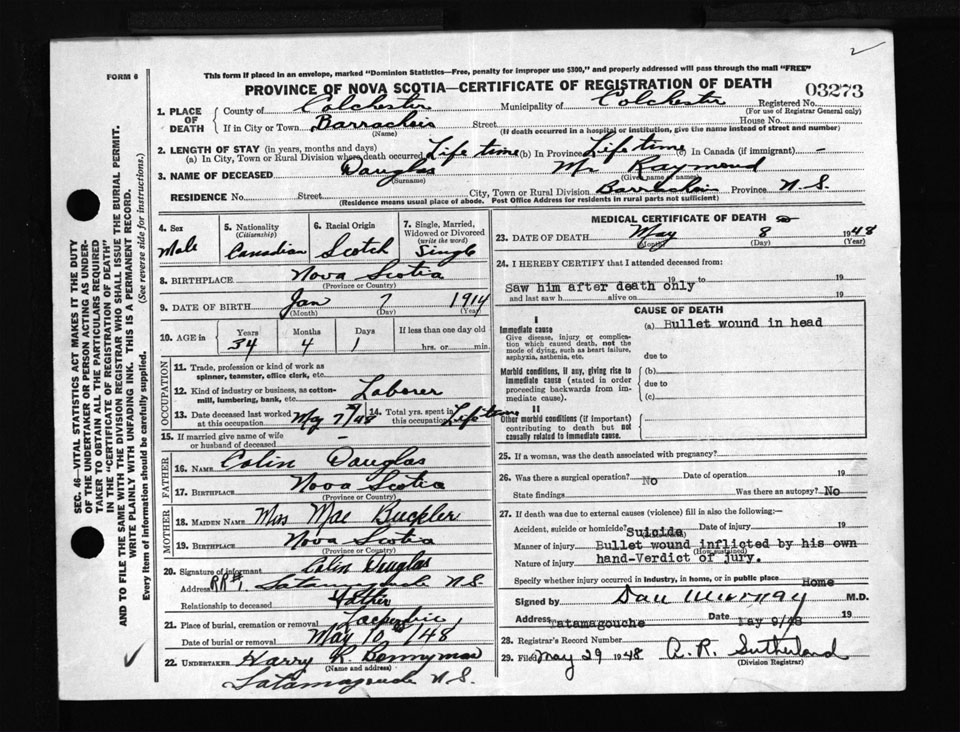 2
FORM 6
This form if placed in an envelope, marked "Dominion Statistics—Free, penalty for improper use $300," and properly addressed will pass through the mail "FREE"
PROVINCE OF NOVA SCOTIA—CERTIFICATE OF REGISTRATION OF DEATH
03273
1. PLACE OF DEATH
County of Colchester Municipality of Colchester Registered No.
(For use of Registrar General only)
If in City or Town Street House No.
(Name) (If death occurred in a hospital or institution, give the name instead of street and number)
2. LENGTH OF STAY (in years, months and days)
(a) In City, Town or Rural Division where death occurred Life time (b) In Province Life time (c) In Canada (if immigrant) -
3. NAME OF DECEASED Douglas Mr Raymond
(Surname) (Given name or names)
RESIDENCE No. Street City, Town or Rural Division Province N.S.
(Residence means usual place of abode. Post Office Address for residents in rural parts not sufficient)
4. Sex
Male
5. Nationality
(Citizenship)
Canadian
6. Racial Origin
Scotch
7. Single, Married, Widowed or Divorced
(write the word)
Single
8. BIRTHPLACE Nova Scotia
(Province or Country)
9. DATE OF BIRTH Jan 7 1914
(Month) (Day) (Year)
10. AGE in Years Months Days If less than one day old
34 4 1 hrs. or min.
OCCUPATION
11. Trade, profession or kind of work as
spinner, teamster, office clerk, etc.
12. Kind of industry or business, as cotton-
mill, lumbering, bank, etc. Laborer
13. Date deceased last worked at this occupation May 7/48
14. Total yrs. spent in this occupation Life time
15. If married give name of wife
or husband of deceased -
FATHER
16. NAME Colin Douglas
17. BIRTHPLACE Nova Scotia
(Province or Country)
MOTHER
18. MAIDEN NAME Miss Mae Buckler
19. BIRTHPLACE Nova Scotia
(Province or Country)
20. Signature of informant Colin Douglas
Address RR#1, Tatamagouche N.S.
Relationship to deceased Father
21. Place of burial, cremation or removal
Date of burial or removal May 10/48
22. UNDERTAKER Harry R. Bonnyman
(Name and address)
Tatamagouche N.S.
MEDICAL CERTIFICATE OF DEATH
23. DATE OF DEATH May 8 1948
(Month) (Day) (Year)
24. I HEREBY CERTIFY that I attended deceased from:
19 to 19
Saw him after death only
and last saw h alive on 19
CAUSE OF DEATH
I
Immediate cause
Give disease, injury, or complication which caused death, not the mode of dying, such as heart failure, asphyxia, asthenia, etc.
(a) Bullet wound in head
due to
Morbid conditions, if any, giving rise to immediate cause (stated in order proceeding backwards from immediate cause).
(b)
due to
(c)
II
Other morbid conditions (if important) contributing to death but not causally related to immediate cause.
25. If a woman, was the death associated with pregnancy?
26. Was there a surgical operation? No Date of operation 19
State findings Was there an autopsy? No
27. If death was due to external causes (violence) fill in also the following:—
Accident, suicide or homicide? Suicide Date of injury 19
Manner of injury Bullet wound inflicted by his own
(How sustained)
Nature of injury hand-Verdict of jury.
Specify whether injury occurred in industry, in home, or in public place Home
Signed by Dan Murray M.D.
Address Tatamagouche Date May 9/48 19
28. Registrar's Record Number
29. Filed May 29 1948 A. R. Sutherland
(Division Registrar)
SEC. 46—VITAL STATISTICS ACT MAKES IT THE DUTY
OF THE UNDERTAKER OR PERSON ACTING AS UNDER-
TAKER TO OBTAIN ALL THE PARTICULARS REQUIRED
IN THE "CERTIFICATE OF REGISTRATION OF DEATH"
AND TO FILE THE SAME WITH THE DIVISION REGISTRAR WHO SHALL ISSUE THE BURIAL PERMIT.
WRITE PLAINLY WITH UNFADING INK. THIS IS A PERMANENT RECORD.
Every item of information should be carefully supplied. (See reverse side for instructions.)